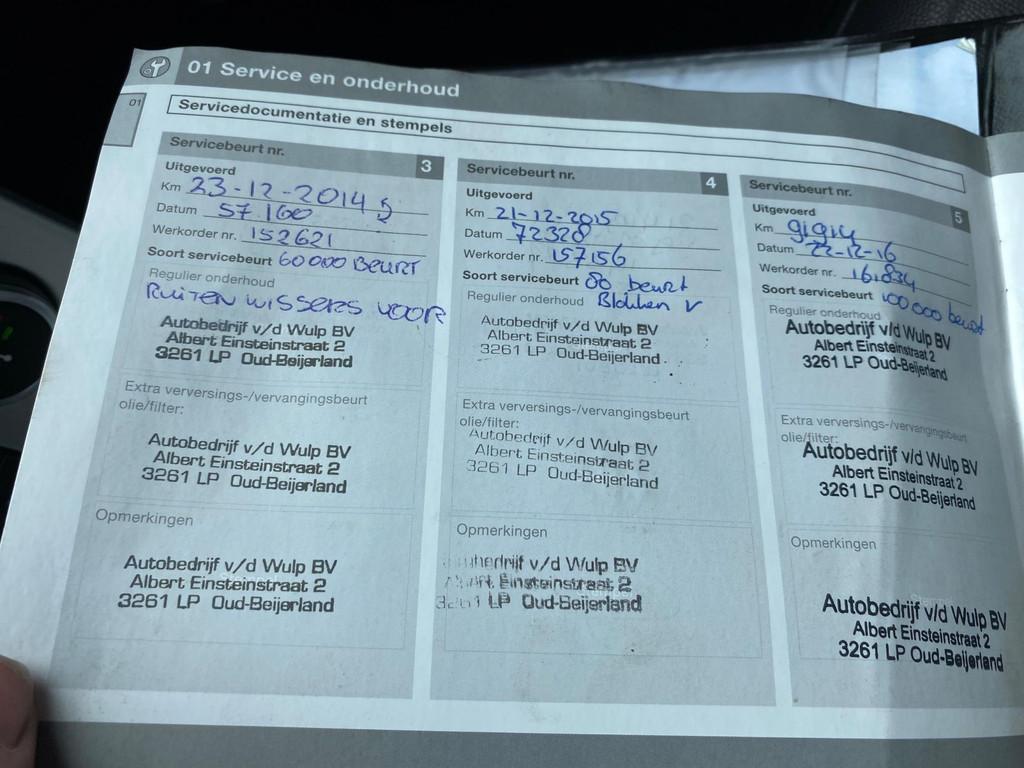 01 Service en onderhoud
01
Servicedocumentatie en stempels
Servicebeurt nr. 3
Uitgevoerd
Km 23-12-2014
Datum 57.160
Werkorder nr. 152621
Soort servicebeurt 60000 BEURT
Regulier onderhoud
RUITEN WISSERS VOOR
Autobedrijf v/d Wulp BV
Albert Einsteinstraat 2
3261 LP Oud-Beijerland
Extra verversings-/vervangingsbeurt
olie/filter:
Autobedrijf v/d Wulp BV
Albert Einsteinstraat 2
3261 LP Oud-Beijerland
Opmerkingen
Autobedrijf v/d Wulp BV
Albert Einsteinstraat 2
3261 LP Oud-Beijerland
Servicebeurt nr. 4
Uitgevoerd
Km 21-12-2015
Datum 72328
Werkorder nr. 157156
Soort servicebeurt 80 beurt
Regulier onderhoud Blokken v
Autobedrijf v/d Wulp BV
Albert Einsteinstraat 2
3261 LP Oud-Beijerland
Extra verversings-/vervangingsbeurt
olie/filter:
Autobedrijf v/d Wulp BV
Albert Einsteinstraat 2
3261 LP Oud-Beijerland
Opmerkingen
Autobedrijf v/d Wulp BV
Albert Einsteinstraat 2
3261 LP Oud-Beijerland
Servicebeurt nr. 5
Uitgevoerd
Km
Datum 22-12-16
Werkorder nr. 161.834
Soort servicebeurt 100000 beurt
Regulier onderhoud
Autobedrijf v/d Wulp BV
Albert Einsteinstraat 2
3261 LP Oud-Beijerland
Extra verversings-/vervangingsbeurt
olie/filter:
Autobedrijf v/d Wulp BV
Albert Einsteinstraat 2
3261 LP Oud-Beijerland
Opmerkingen
Autobedrijf v/d Wulp BV
Albert Einsteinstraat 2
3261 LP Oud-Beijerland